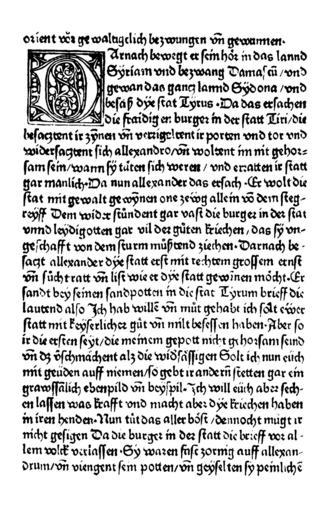 orient vör gewaltigklich bezwungen vñ gewunnen.
DArnach bewegt er sein hör in das lannd
Syriam vnd bezwang Damascũ / vnd
gewan das gantz lannd Sydona / vnd
besaß dye stat Tyrus · Da das ersachen
die fraidigen burger in der statt Tiri / die
besactztent ir zynen vñ verrigeltent ir porten vnd tor vnd
widersactztent sich allexandro / vñ woltent im nit gehor-
sam sein / wann sy täten sich weren / vnd ertatten ir statt
gar manlich · Da nun allexander das ersach · Er wolt die
stat mit gewalt gewynen one zeüg allein vö dem steg-
reyff Dem widerstündent gar vast die burger in der stat
vnnd leydigotten gar vil der güten kriechen / das sy vn-
geschafft von dem sturm müsstend ziechen · Darnach be-
sactzt allexander dye statt erst mit rechtem grossem ernst
vñ süchtratt vñ list wie er dye statt gewinen möcht · Er
sandt bey seinen sandpotten in die stat Tyrum brieff die
lautend also Ich hab willẽ vñ müt gehabt ich sölt ewer
statt mit keyserlicher güt vñ milt besessen haben · Aber so
ir die ersten seyt / die meinem gepott nicht gehorsam seind
vñ dz v̈schmächent als die widsässigen Solt ich nun eüch
mit geüden auff niemen / so gebt ir anderñ stetten gar ein
grawssälich ebenpild vñ beyspil · Ich will eüch aber sech-
en lassen was krafft vnd macht aber dye kriechen haben
in iren henden · Nun tüt das aller böst / dennocht mügt ir
nicht gesigen Da die burger in der statt die brieff vor al-
lem volck verlassen · Sy waren fast zornig auff allexan-
drum / vñ viengent sein potten / vñ geyselten sy peinlichẽ